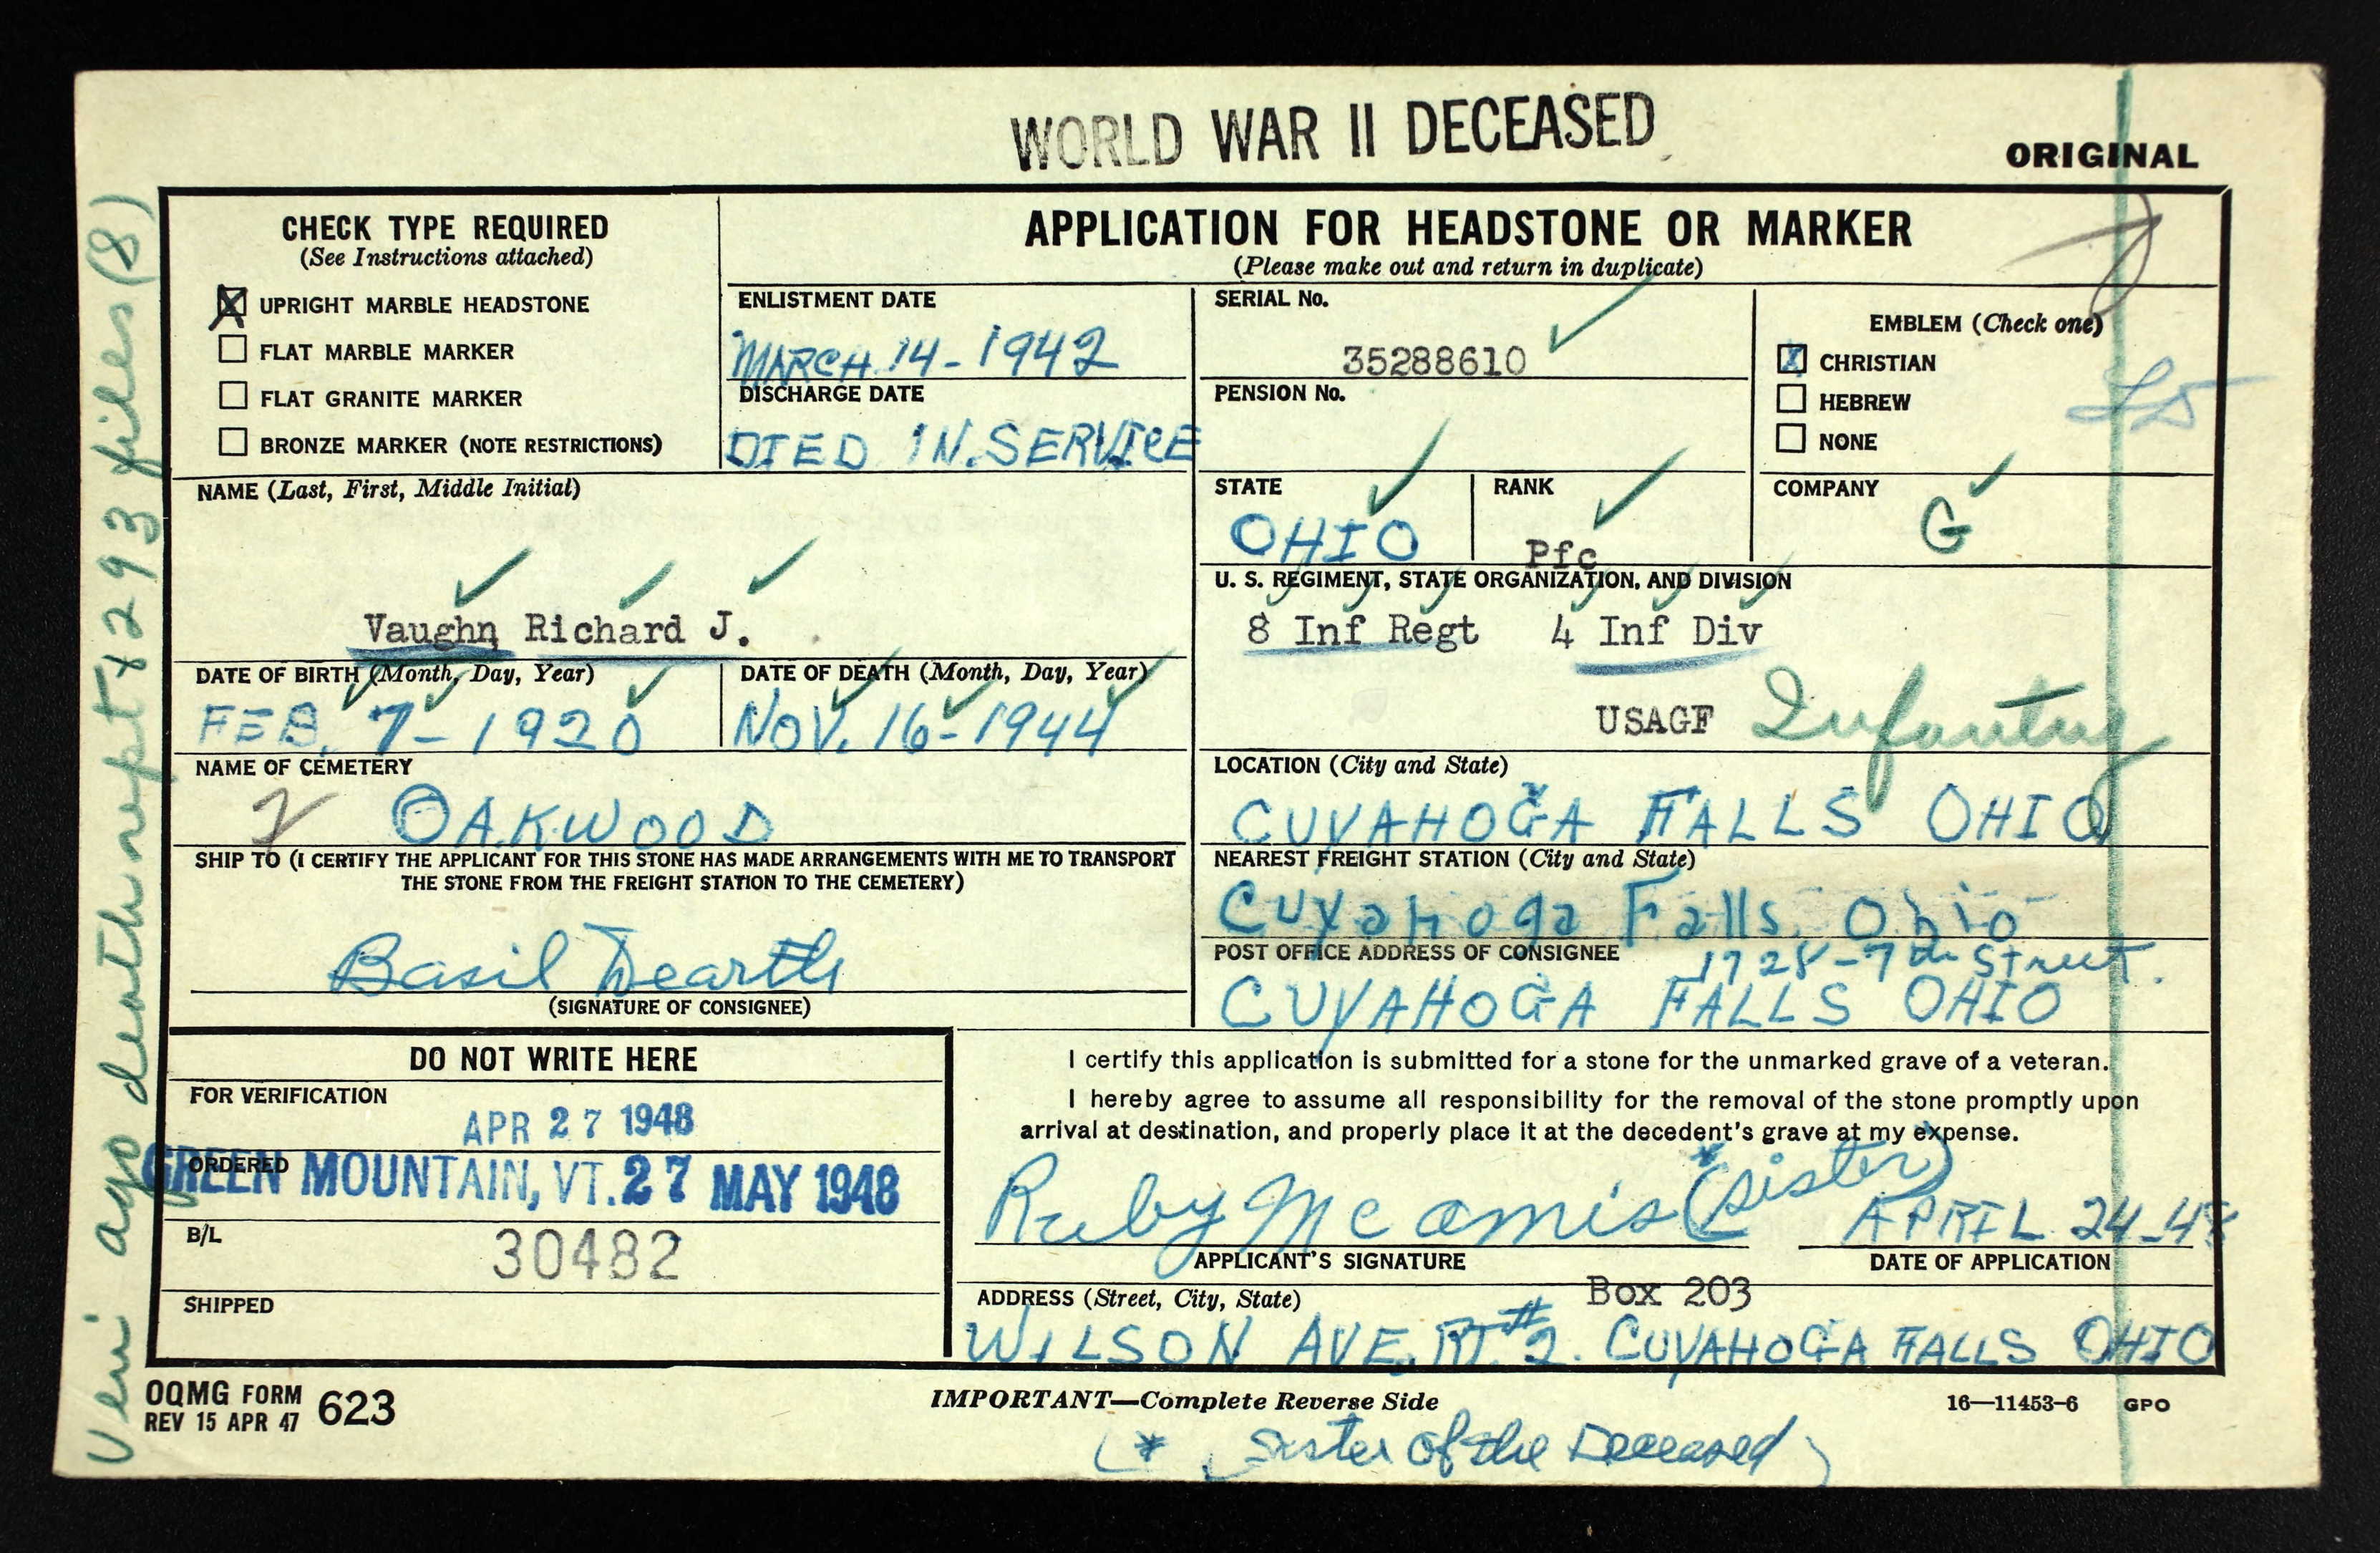 WORLD WAR II DECEASED
ORIGINAL
CHECK TYPE REQUIRED
(See Instructions attached)
X UPRIGHT MARBLE HEADSTONE
FLAT MARBLE MARKER
FLAT GRANITE MARKER
BRONZE MARKER (NOTE RESTRICTIONS)
APPLICATION FOR HEADSTONE OR MARKER
(Please make out and return in duplicate)
ENLISTMENT DATE
MARCH 14-1942
DISCHARGE DATE
DIED IN. SERVICE
SERIAL No.
35288610
PENSION No.
EMBLEM (Check one)
X CHRISTIAN
HEBREW
NONE
NAME (Last, First, Middle Initial)
Vaughn, Richard J.
STATE
OHIO
RANK
Pfc
COMPANY
G
U. S. REGIMENT, STATE ORGANIZATION, AND DIVISION
8 Inf Regt 4 Inf Div
USAGF Infantry
DATE OF BIRTH (Month, Day, Year)
FEB. 7-1920
DATE OF DEATH (Month, Day, Year)
NOV. 16-1944
NAME OF CEMETERY
OAKWOOD
LOCATION (City and State)
CUYAHOGA FALLS OHIO
SHIP TO (I CERTIFY THE APPLICANT FOR THIS STONE HAS MADE ARRANGEMENTS WITH ME TO TRANSPORT
THE STONE FROM THE FREIGHT STATION TO THE CEMETERY)
Basil Dearth
(SIGNATURE OF CONSIGNEE)
NEAREST FREIGHT STATION (City and State)
Cuyahoga Falls, Ohio
POST OFFICE ADDRESS OF CONSIGNEE
1728-7th Street.
CUYAHOGA FALLS OHIO
DO NOT WRITE HERE
FOR VERIFICATION
APR 27 1948
ORDERED
GREEN MOUNTAIN, VT. 27 MAY 1948
B/L
30482
SHIPPED
I certify this application is submitted for a stone for the unmarked grave of a veteran.
I hereby agree to assume all responsibility for the removal of the stone promptly upon
arrival at destination, and properly place it at the decedent's grave at my expense.
Ruby McAmis * (sister)
APPLICANT'S SIGNATURE
APRIL 24-48
DATE OF APPLICATION
ADDRESS (Street, City, State)
Box 203
WILSON AVE. RT. #2. CUYAHOGA FALLS OHIO
OQMG FORM 623
REV 15 APR 47
IMPORTANT—Complete Reverse Side
16—11453-6 GPO
(* Sister of the Deceased)
Veri ago death rept & 293 files (8)